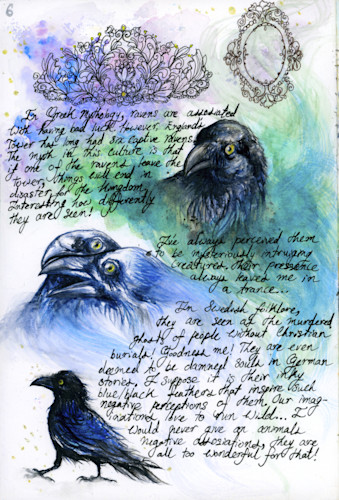 6
In Greek Mythology, ravens are associated
with having bad luck. However, England's
Tower has long had six captive ravens.
The myth in this culture is that
if one of the ravens leave the
tower, things will end in
disaster for the kingdom.
Interesting how differently
they are seen!
I've always perceived them
to be mysteriously intriguing
creatures, their pressence
always leaved me in
a trance...
In Swedish folklore,
they are seen as the murdered
ghosts of people without Christian
burials! Goodness me! They are even
deemed to be damned souls in German
stories, I suppose it is their inky
blue/black feathers that inspire such
negative perceptions of them. Our imag-
inations love to run wild... I
would never give an animals
negative assosiations, they are
all too wonderful for that!